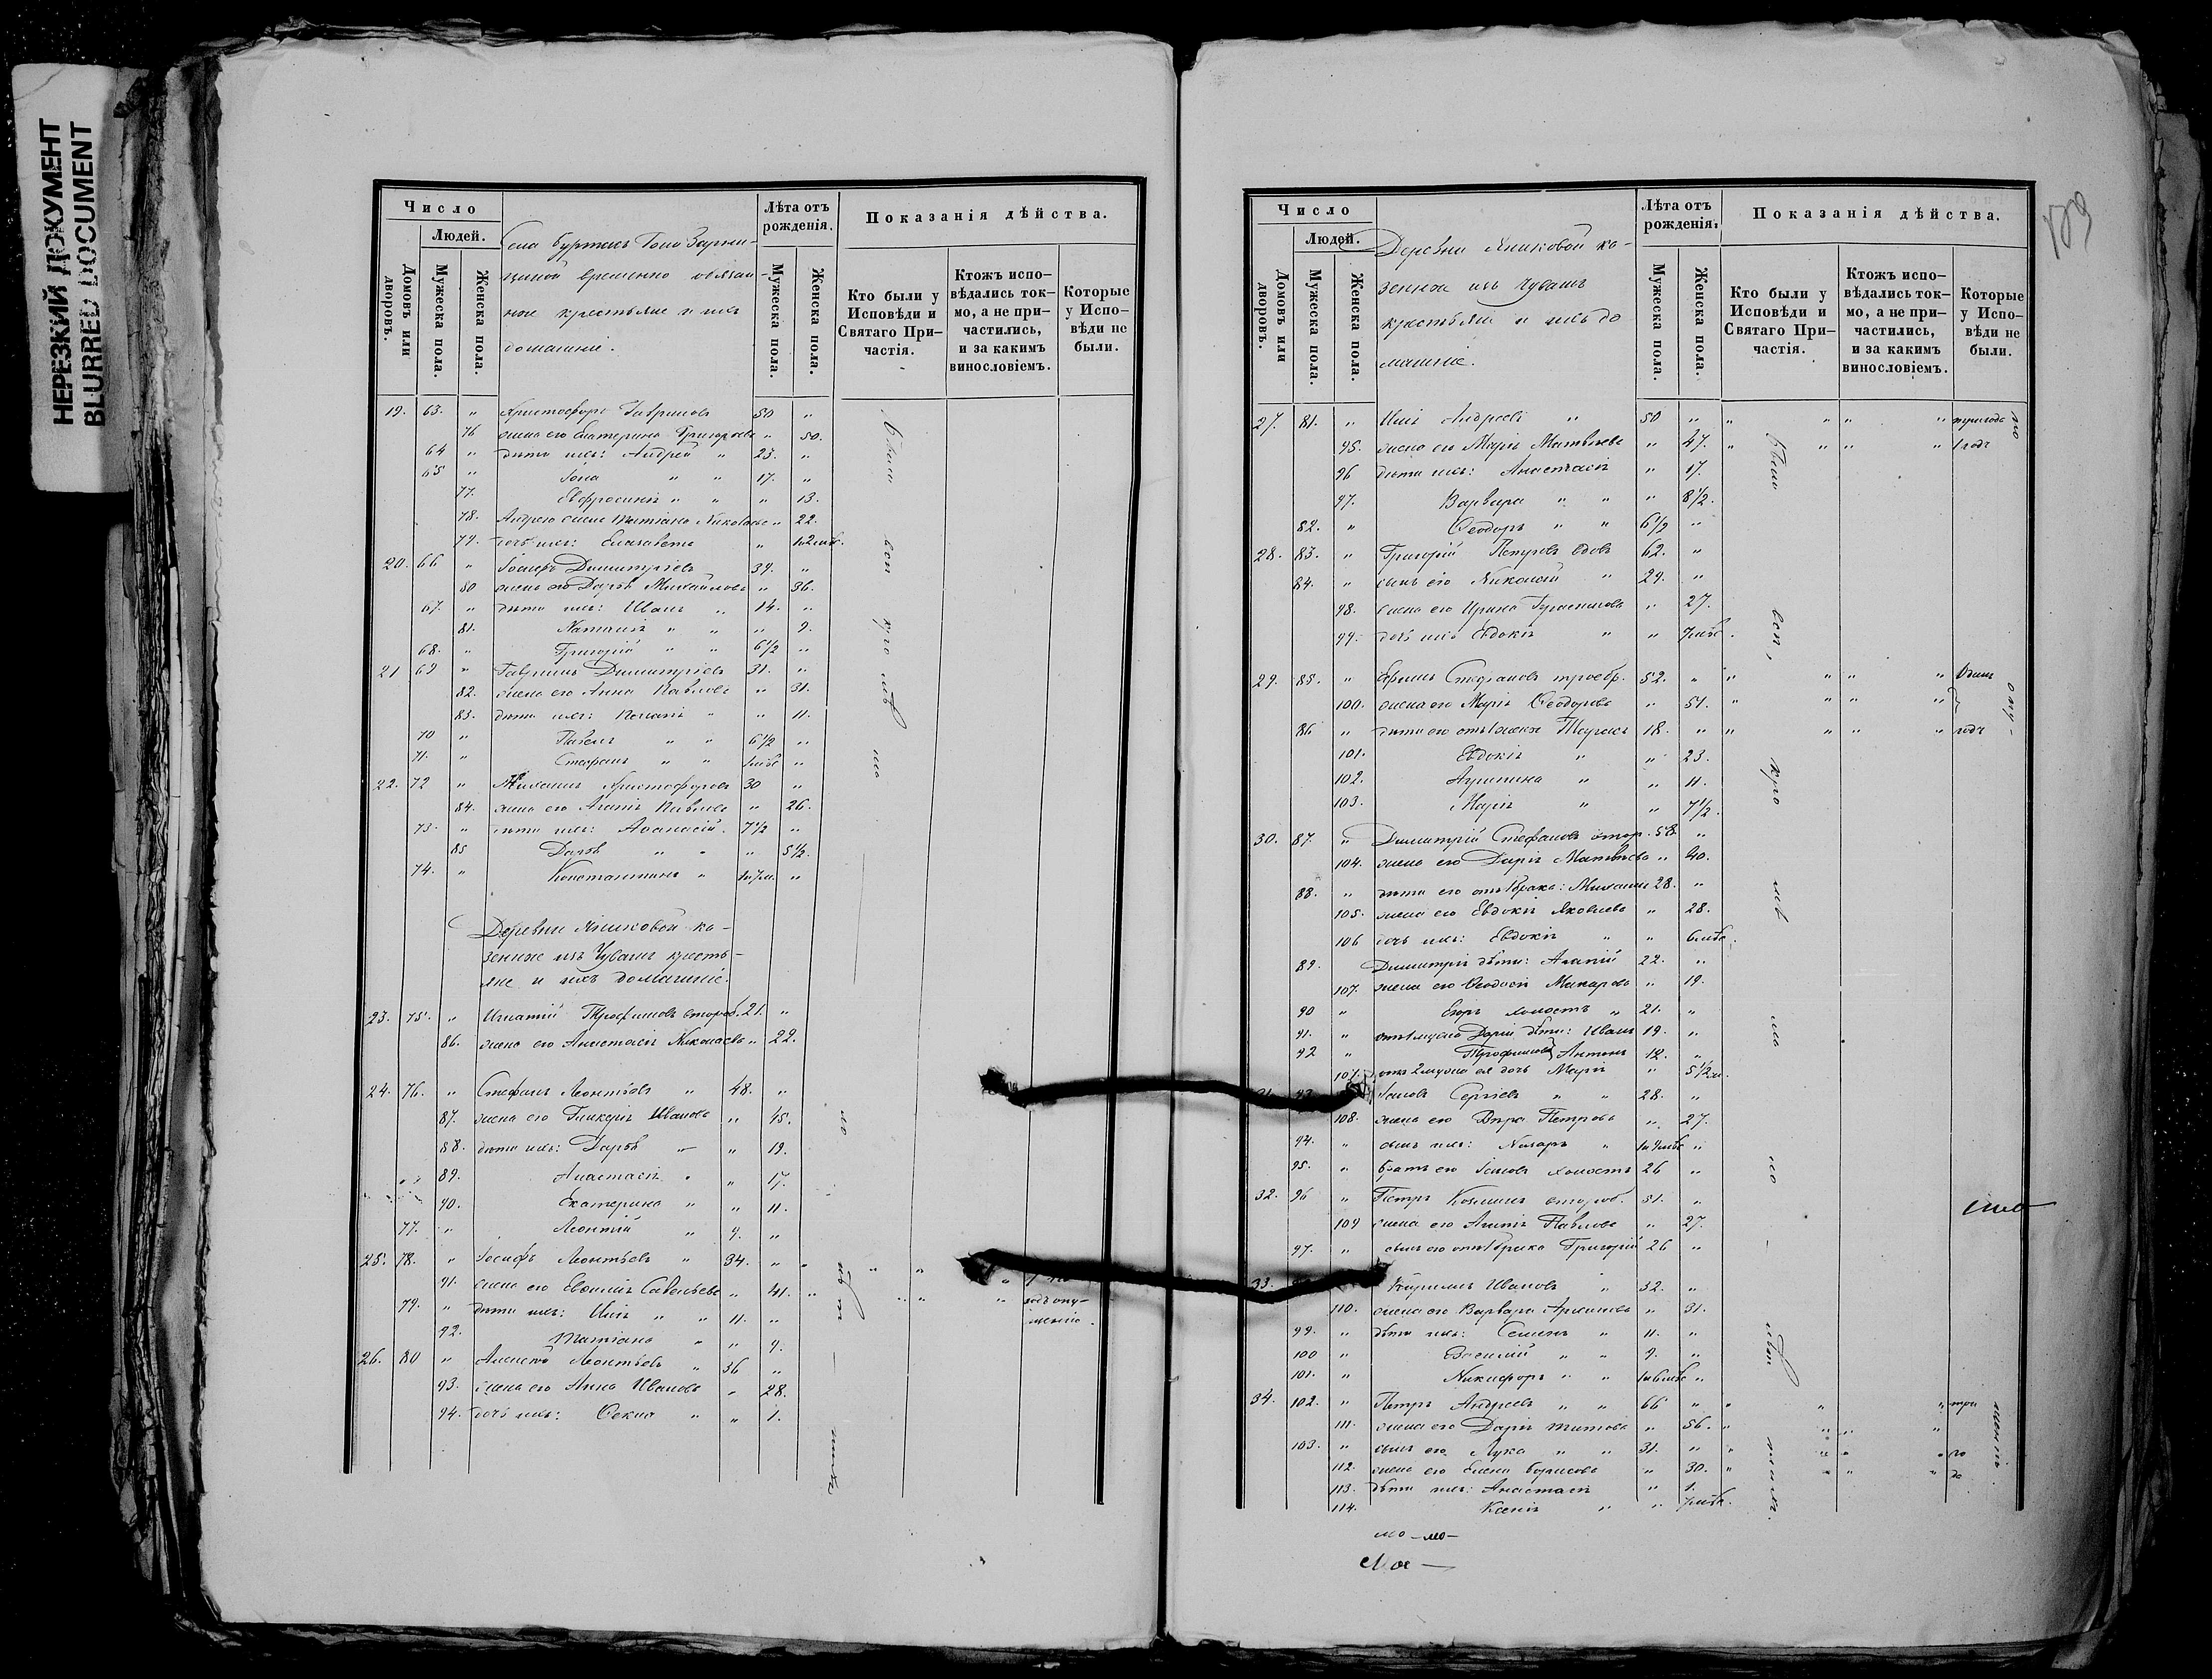 НЕРЕЗКИЙ ДОКУМЕНТ
BLURRED DOCUMENT
Число
Людей.
Домовъ или дворовъ.
Мужеска пола.
Женска пола.
временно обязан-
ные крестьяне и ихъ
домашніе.
Лѣта отъ рожденія.
Мужеска пола.
Женска пола.
Показанія дѣйства.
Кто были у Исповѣди и Святаго При-частія.
Ктожъ испо-вѣдались ток-мо, а не при-частились, и за какимъ винословіемъ.
Которые у Испо-вѣди не были.
19. 63. " Христофоръ Гавриловъ 50 "
76 жена его Екатерина Григорьева " 50.
64 " дѣти ихъ: Андрей " 23. "
65 " Іона " " 17. "
77. Евфросинія " " " 13.
78. Андрея жена Татіана Николаева " 22.
79. дочь ихъ: Елизавета "
20. 66 " Іосифъ Димитріевъ 39. "
80 жена его Дарья Михайлова " 36.
67. " дѣти ихъ: Иванъ " 14. "
81. Наталія " " " 9.
68. " Григорій " " 6½ "
21 69 " Гавріилъ Димитріевъ 31. "
82. жена его Анна Павлова " 31.
83. дѣти ихъ: " " 11.
70 " Павелъ " " 6½ "
71. " Стефанъ " "
22. 72 " Михаилъ Христофоровъ 30 "
84. жена его Агапія Павлова " 26.
73. " дѣти ихъ: Аѳанасій. 7½ "
85 Дарья " " " 5½.
74. " Константинъ "
Деревни Яниковой ка-
зенные изъ Чувашъ кресть-
яне и ихъ домашніе.
23. 75. " Игнатій Трофимовъ второб. 21. "
86. жена его Анастасія Николаева " 22.
24. 76. " Стефанъ Леонтьевъ " 48. "
87. жена его Гликерія Иванова " 45.
88. дѣти ихъ: Дарья " 19.
89. Анастасія " " 17.
90. Екатерина " " 11.
77. " Леонтій " 9. "
25. 78. " Іосифъ Леонтьевъ " 34. "
91. жена его Евѳимія Савельева " 41. "
79. " дѣти ихъ: Илія " " 11. "
92. Татіана " " 9.
26. 80 " Алексѣй Леонтьевъ " 36 "
93. жена его Анна Иванова " 28.
94. дочь ихъ: Ѳекла " " 1.
Число
Людей.
Домовъ или дворовъ.
Мужеска пола.
Женска пола.
Деревни Яниковой ка-
зенные изъ Чувашъ
крестьяне и ихъ до
машніе.
Лѣта отъ рожденія.
Мужеска пола.
Женска пола.
Показанія дѣйства.
Кто были у Исповѣди и Святаго При-частія.
Ктожъ испо-вѣдались ток-мо, а не при-частились, и за какимъ винословіемъ.
Которые у Испо-вѣди не были.
27. 81. " Илія Андреевъ " 50 " " " " "
95. жена его Марія Матвѣева " 47. " " " " 1 годъ
96 дѣти ихъ: Анастасія " 17.
97. Варвара " " " 8½.
82. " Ѳеодоръ " " 6½ "
28. 83. " Григорій Петровъ вдовъ 62. "
84. " сынъ его Николай " 29. "
98. жена его Ирина Герасимова " 27.
99. дочь ихъ Евдокія " "
29. 85. " Ефимъ Стефановъ троебр. 52. " " " " " Одинъ
100. жена его Марія Ѳеодорова " 51. " " " "
86 " 18. " " " " " годъ
101. Евдокія " " 23.
102. " " 11.
103. Марія " " 7½.
30. 87. " Димитрій Стефановъ втор. 58. "
104. жена его Дарія Матвѣева " 40.
88. " дѣти его отъ 1 брака: Михаилъ 28. "
105. жена его Евдокія Яковлева " 28.
106 дочь ихъ: Евдокія " "
89. Димитрія дѣти: Агапій 22. "
107. жена его Ѳеодосія Макарова " 19.
90 " Егоръ холостъ " 21. "
91. " отъ 1 мужа Даріи дѣти: Иванъ 19. "
92 " Трофимовы Антонъ 12. "
107. отъ 2 мужа ея дочь Марія " 5½
Іаковъ Сергѣевъ " " 28. "
108. жена его Вѣра Петрова " 27.
94. " сынъ ихъ: Назаръ "
95. " братъ его Іаковъ холостъ 26 "
32. 96 " Петръ Козминъ второб. 51. "
109 жена его Агапія Павлова " 27.
97. " сынъ его отъ 1 брака Григорій 26 "
33. Кириллъ Ивановъ " 32. "
110. жена его Варвара " 31.
99. " дѣти ихъ: Семенъ " 11. "
100 " Василій " " 9. "
101. " Никифоръ " "
34. 102. " Петръ Андреевъ " " 66 " " " " три
111. жена его Дарія Титова " 56. " " " "
103. " сынъ его Лука " " 31. " " " " " го
112. жена его Елена Борисова " 30. " " " " да
113. дѣти ихъ: Анастасія " 1.
114. Ксенія " "